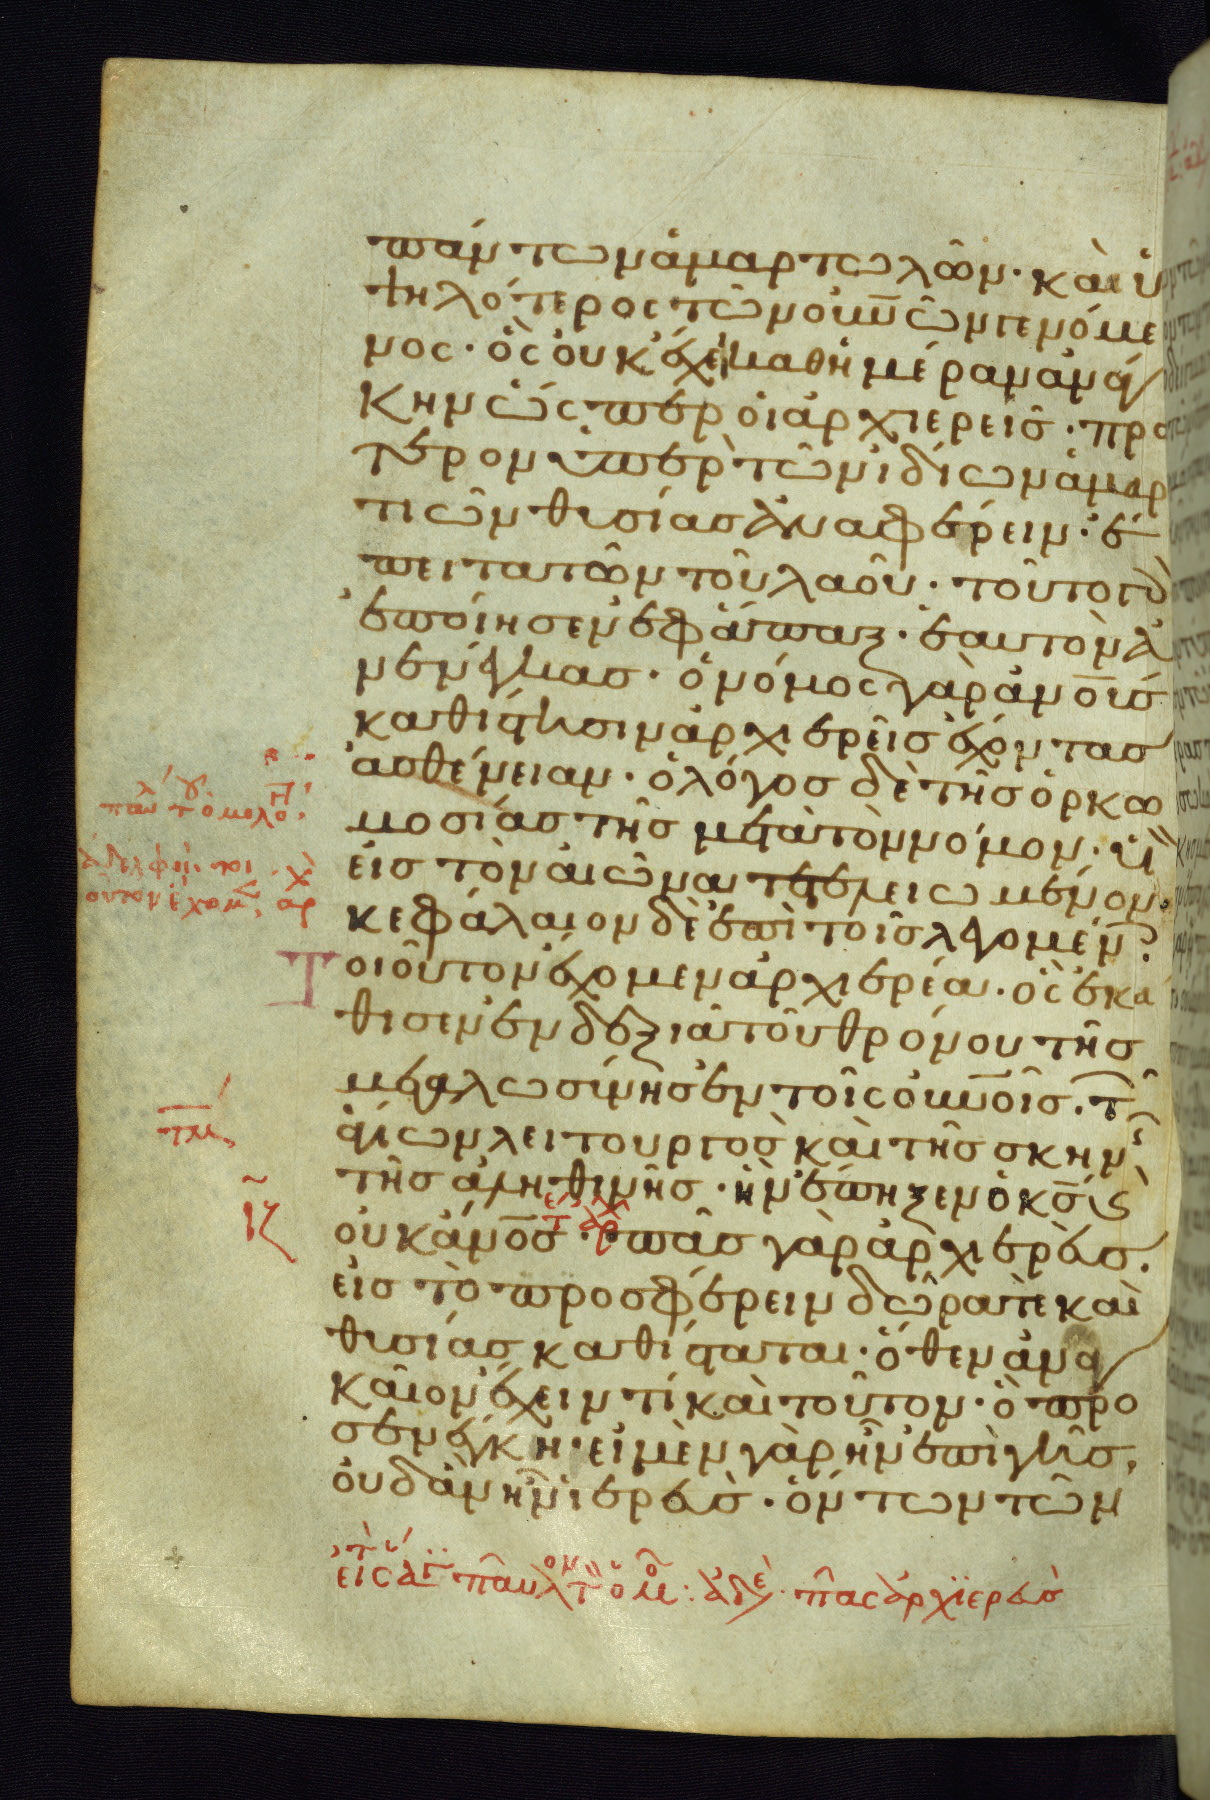 πάντων ἁμαρτωλῶν· καὶ ὑ
ψηλότερος τῶν οὐν̅ῶν γενόμε
νος· ὃς οὐκ ἔχει καθημέραν ἀνάγ
κην ὥσπερ οἱ ἀρχιερεῖς· πρό
τερον ὑπὲρ τῶν ἰδίων ἁμαρ
τιῶν θυσίας ἀναφέρειν· ἔ
πειτα τῶν τοῦ λαοῦ· τοῦτο γὰρ
ἐποίησεν ἐφάπαξ· ἑαυτὸν ἀ
νενέγκας· ὁ νόμος γὰρ ἀν̅ο̅ι̅ς
καθίστησιν ἀρχιερεῖς ἔχοντας
ἀσθένειαν· ὁ λόγος δὲ τῆς ὁρκω
μοσίας τῆς μετὰ τὸν νόμον· υν
εἰς τὸν αἰῶνα τετελειωμένον·
κεφάλαιον δὲ ἐπὶ τοῖς λεγομέν
Τοιοῦτον ἔχομεν ἀρχιερέα· ὃς ἐκά
θισεν ἐν δεξιᾷ τοῦ θρόνου τῆς
μεγαλωσύνης ἐν τοῖς οὐν̅οῖς· τ
ἁγίων λειτουργὸς καὶ τῆς σκην
τῆς ἀληθινῆς· ἣν ἔπηξεν ὁ κ̅ς̅ καὶ
οὐκ ἄν̅ο̅ς· πᾶς γὰρ ἀρχιερεὺς
εἰς τὸ προσφέρειν δῶρά τε καὶ
θυσίας καθίσταται· ὅθεν ἀναγ
καῖον ἔχειν τι καὶ τοῦτον· ὃ προ
σενέγκῃ· εἰ μὲν γὰρ ἦν ἐπὶ γῆς,
οὐδ' ἂν ἦν ἱερεύς· ὄντων τῶν
ἀδελφοί· τοι
οὗτον ἔχομ ἀρ
τελ
πᾶς ἀρχϊερεὺς